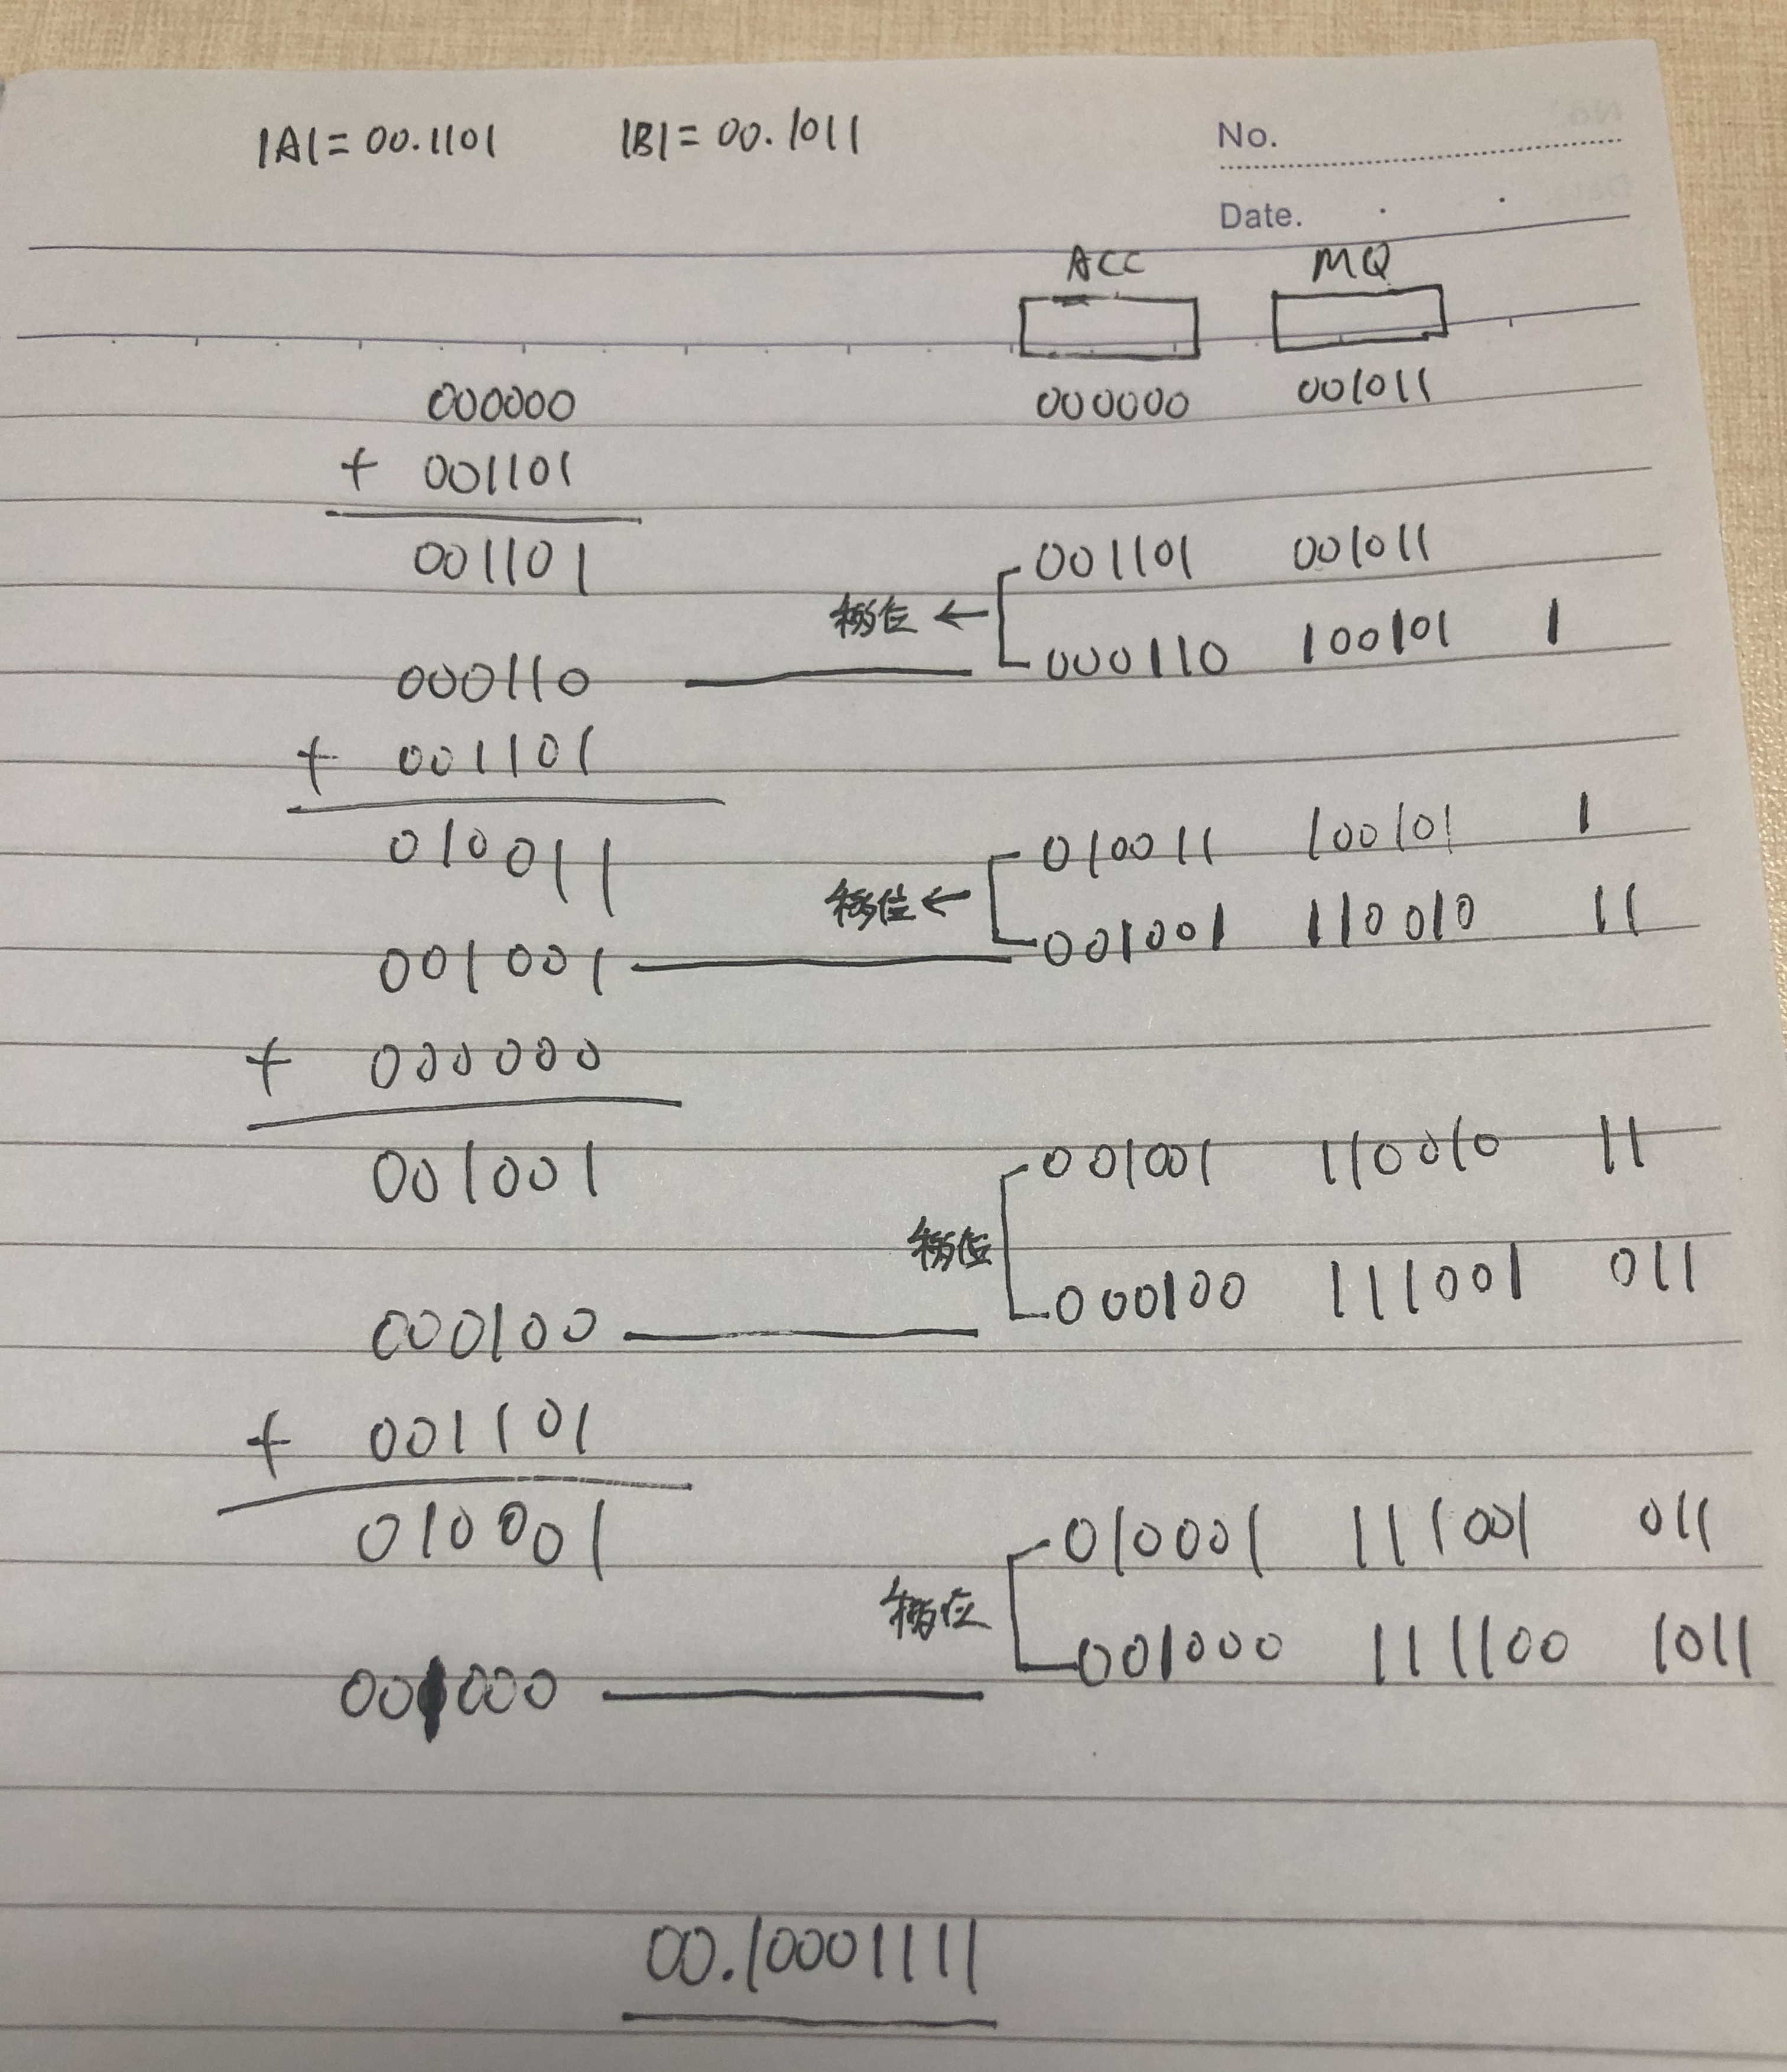 |A|=00.1101 |B|=00.1011
No.
Date.
ACC MQ
000000 000000 001011
+ 001101
001101 001101 001011
移位 ←
000110 000110 100101 1
+ 001101
010011 010011 100101 1
移位 ←
001001 001001 110010 11
+ 000000
001001 001001 110010 11
移位
000100 000100 111001 011
+ 001101
010001 010001 111001 011
移位
001000 001000 111100 1011
00.10001111